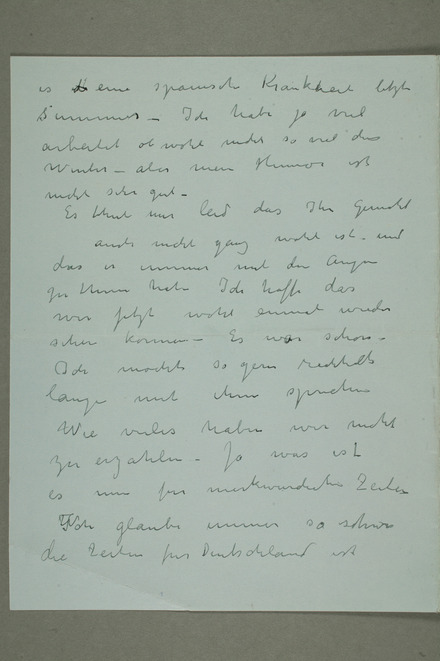 es eine spanische Krankheit letzte
Summer – Ich habe ja viel
arbeitet obwohl nicht so viel das
Winter – aber mein Humor ist
nicht sehr gut –
Es thut mir leid das Ihr Gemahl
auch nicht ganz wohl ist – und
das er immer mit den Augen
zu thun hat. Ich hoffe das
wir jetzt wohl einmal wieder
sehen konnen – Es war schon –
Ich mochte so gern
lange mit ihnen sprechen
Wie vieles haben wir nicht
zu erzahlen – Ja was ist
es nun fur merkwurdiche Zeiten
Ich glaube immer so schwer
die Zeiten fur Deutschland ist